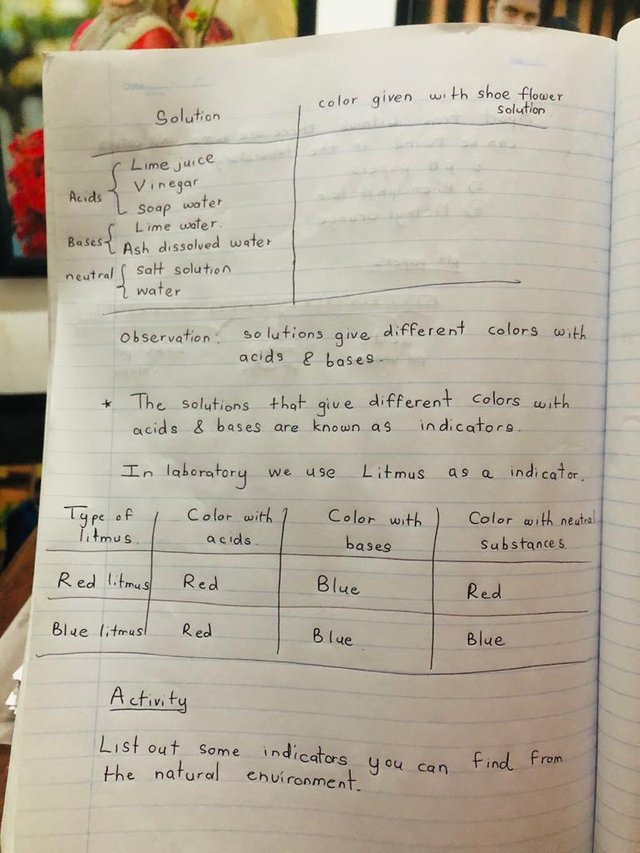 Solution
color given with shoe flower
solution
Acids
Lime juice
Vinegar
Soap water
Bases
Lime water.
Ash dissolved water
neutral
salt solution
water
Observation: solutions give different colors with
acids & bases.
* The solutions that give different colors with
acids & bases are known as indicators.
In laboratory we use Litmus as a indicator.
Type of litmus. Color with acids. Color with bases Color with neutral substances
Red litmus Red Blue Red
Blue litmus Red Blue. Blue
Activity
List out some indicators you can find from
the natural environment.